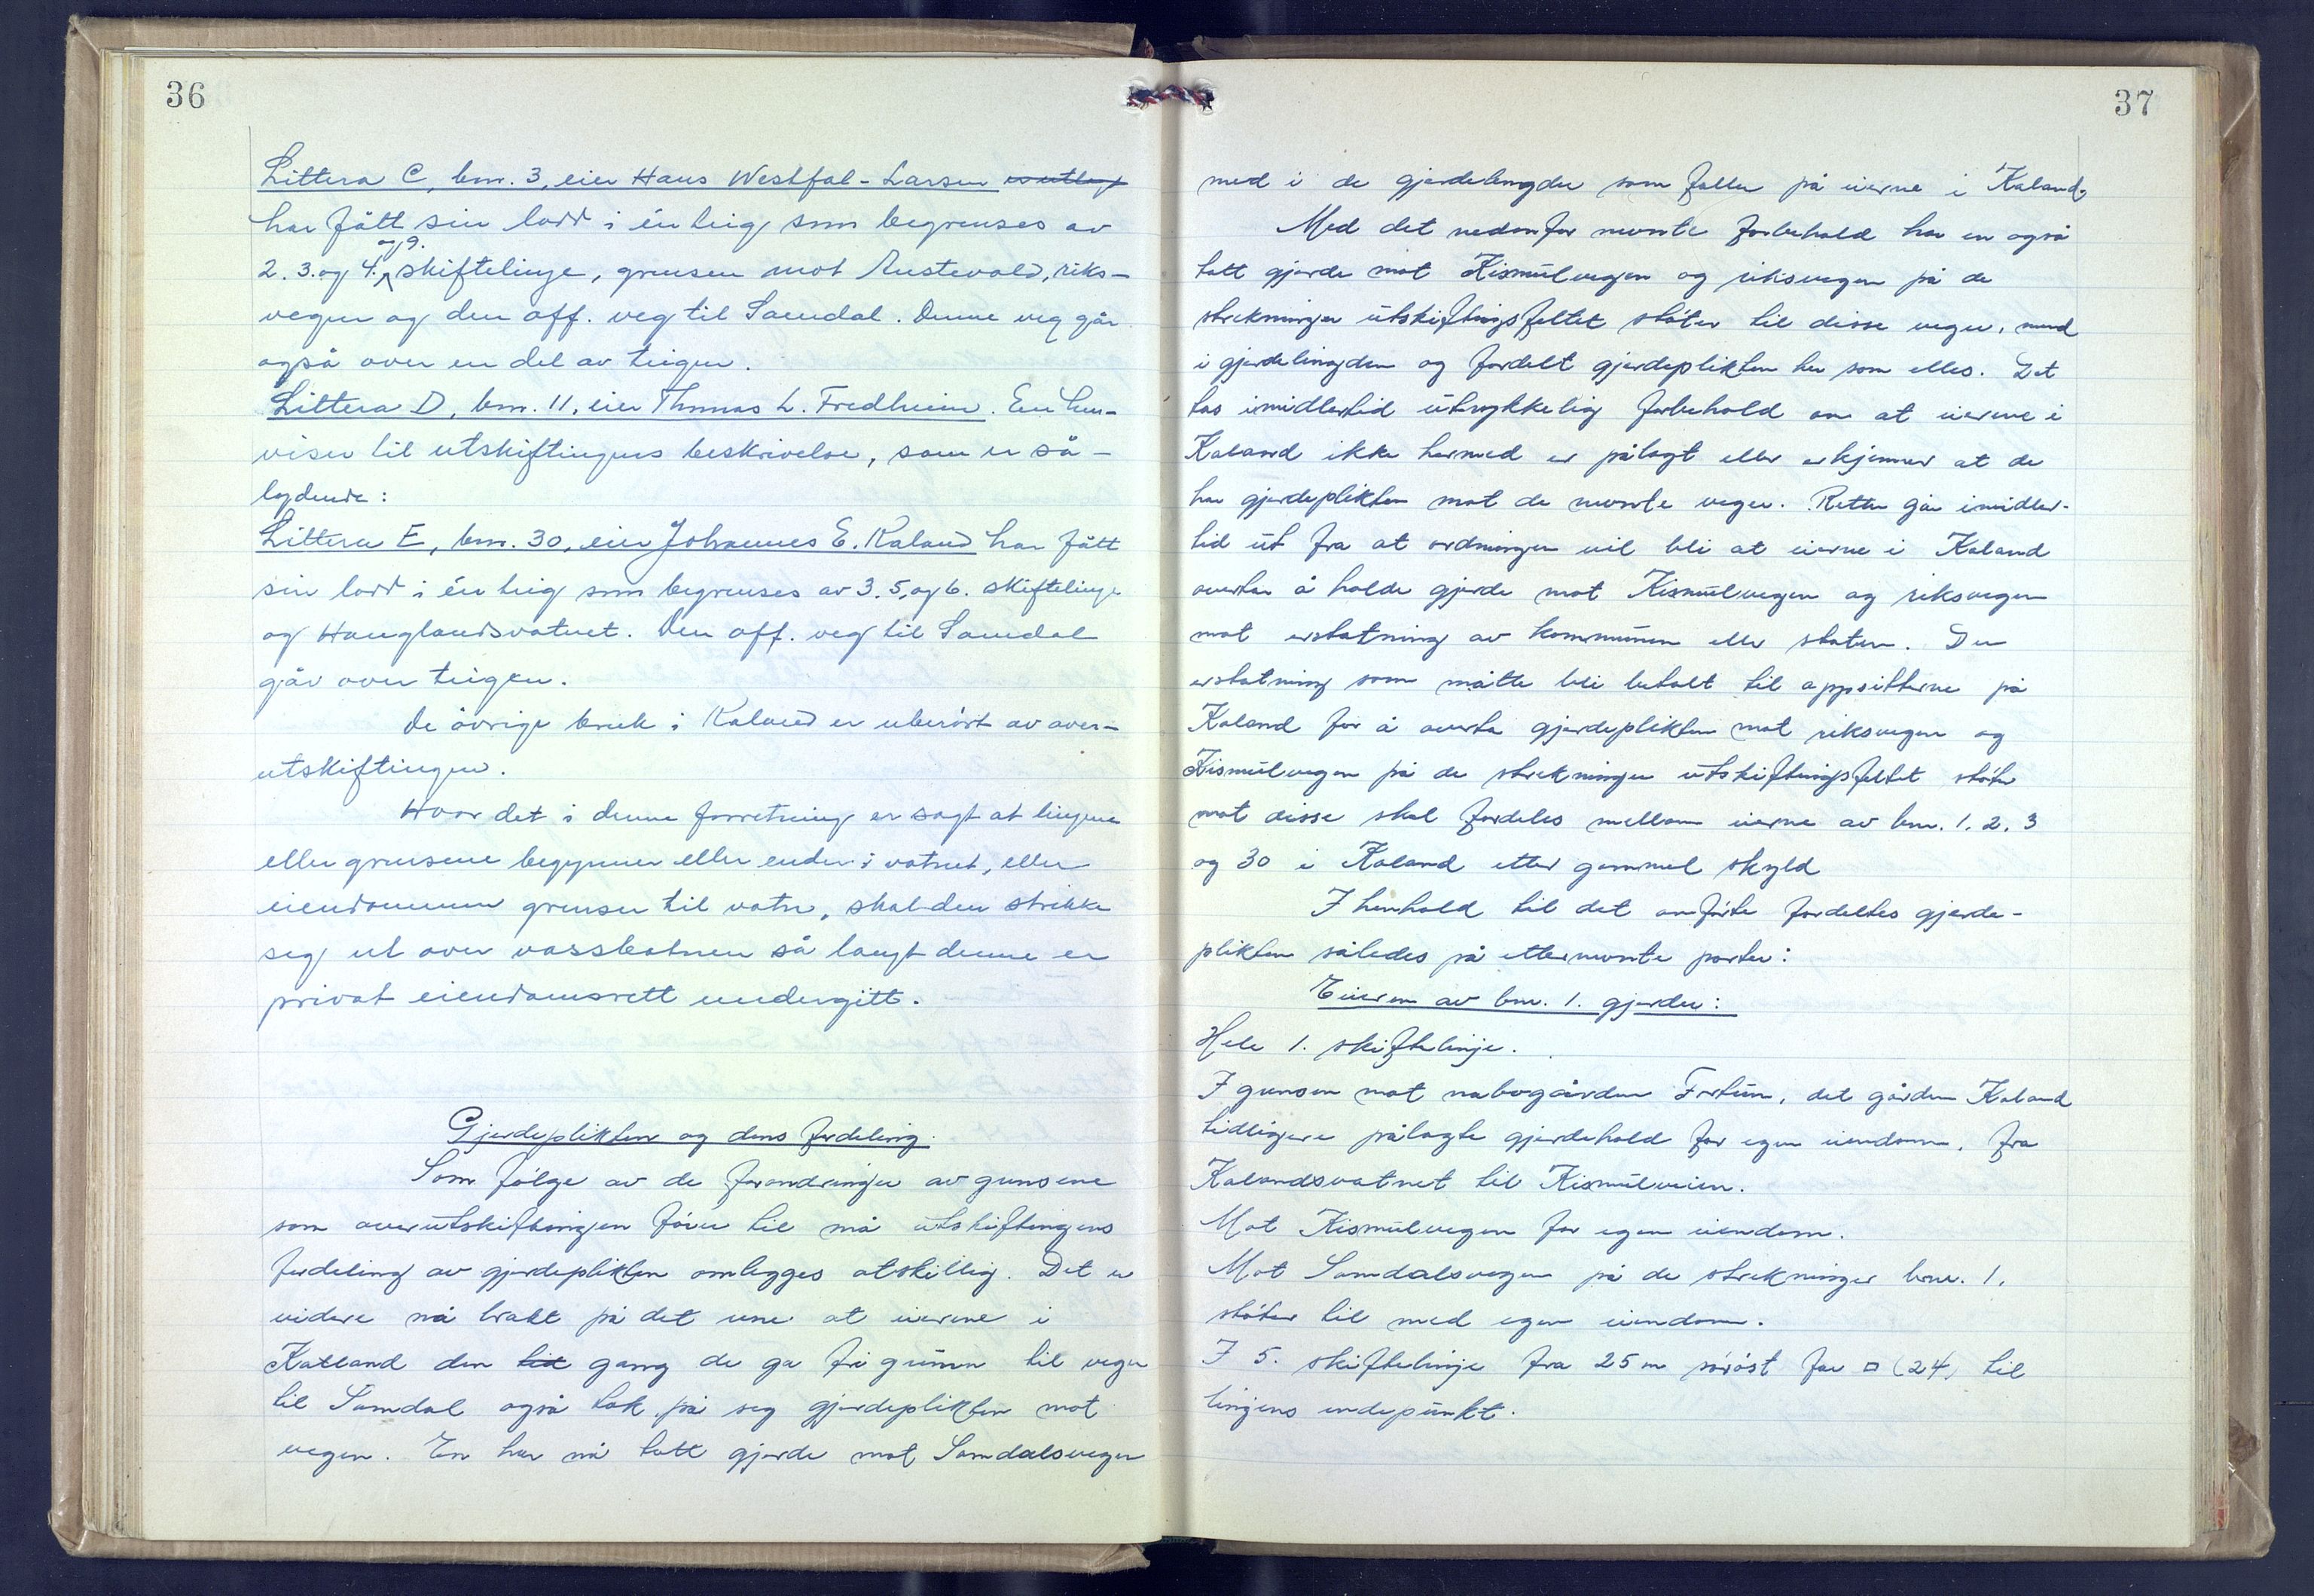 36
Littera C, bnr. 3, eier Hans Westfal-Larsen
har fått sin lodd i én teig som begrenses av
2. 3. og 4. og 9. skiftelinje, grensen mot Austevold, riks-
vegen og den off. veg til Samdal. Denne veg går
også over en del av teigen.
Littera D, bnr. 11, eier Thomas L. Fredheim. En hen-
viser til utskiftingens beskrivelse, som er så-
lydende:
Littera E, bnr. 30, eier Johannes E. Kaland har fått
sin lodd i én teig som begrenses av 3. 5. og 6. skiftelinje
og Hauglandsvatnet. Den off. veg til Samdal
går over teigen.
De övrige bruk i Kaland er uberört av over-
utskiftingen.
Hvor det i denne forretning er sagt at linjene
eller grensene begynner eller ender i vatnet, eller
eiendommen grenser til vatn, skal den strekke
seg ut over vassbotnen så langt denne er
privat eiendomsrett undergitt.
Gjerdeplikten og dens fordeling.
Som fölge av de forandringer av grensene
som overutskiftningen förer til må utskiftingens
fordeling av gjerdeplikten omlegges atskillig. Det er
videre nå brakt på det rene at eierne i
Kalland den tid gang de ga fri grunn til vegen
til Samdal også tok på seg gjerdeplikten mot
vegen. En har nå tatt gjerde mot Samdalsvegen
37
med i de gjerdelengder som faller på eierne i Kaland.
Med det nedenfor nevnte forbehold har en også
tatt gjerde mot Kismulvegen og riksvegen på de
strekninger utskiftingsfeltet stöter til disse veger, med
i gjerdelengden og fordelt gjerdeplikten her som elles. Det
tas imidlertid utrykkelig forbehold om at eierne i
Kaland ikke hermed er pålagt eller erkjenner at de
har gjerdeplikten mot de nevnte veger. Retten går imidler-
tid ut fra at ordningen vil bli at eierne i Kaland
overtar å holde gjerde mot Kismulvegen og riksvegen
mot erstatning av kommunen eller staten. Den
erstatning som måtte bli betalt til oppsitterne på
Kaland for å overta gjerdeplikten mot riksvegen og
Kismulvegen på de strekninger utskiftingsfeltet stöter
mot disse skal fordeles mellom eierne av bnr. 1. 2. 3
og 30 i Kaland etter gammel skyld
I henhold til det anförte fordeltes gjerde-
plikten således på etternevnte parter:
Eieren av bnr. 1. gjerder:
Hele 1. skiftelinje.
I grensen mot nabogården Fortun, det gården Kaland
tidligere pålagte gjerdehold for egen eiendom, fra
Kalandsvatnet til Kismulveien.
Mot Kismulvegen for egen eiendom.
Mot Samdalsvegen på de strekninger bnr. 1.
stöter til med egen eiendom.
I 5. skiftelinje fra 25 m söröst for □ (24) til
linjens endepunkt.